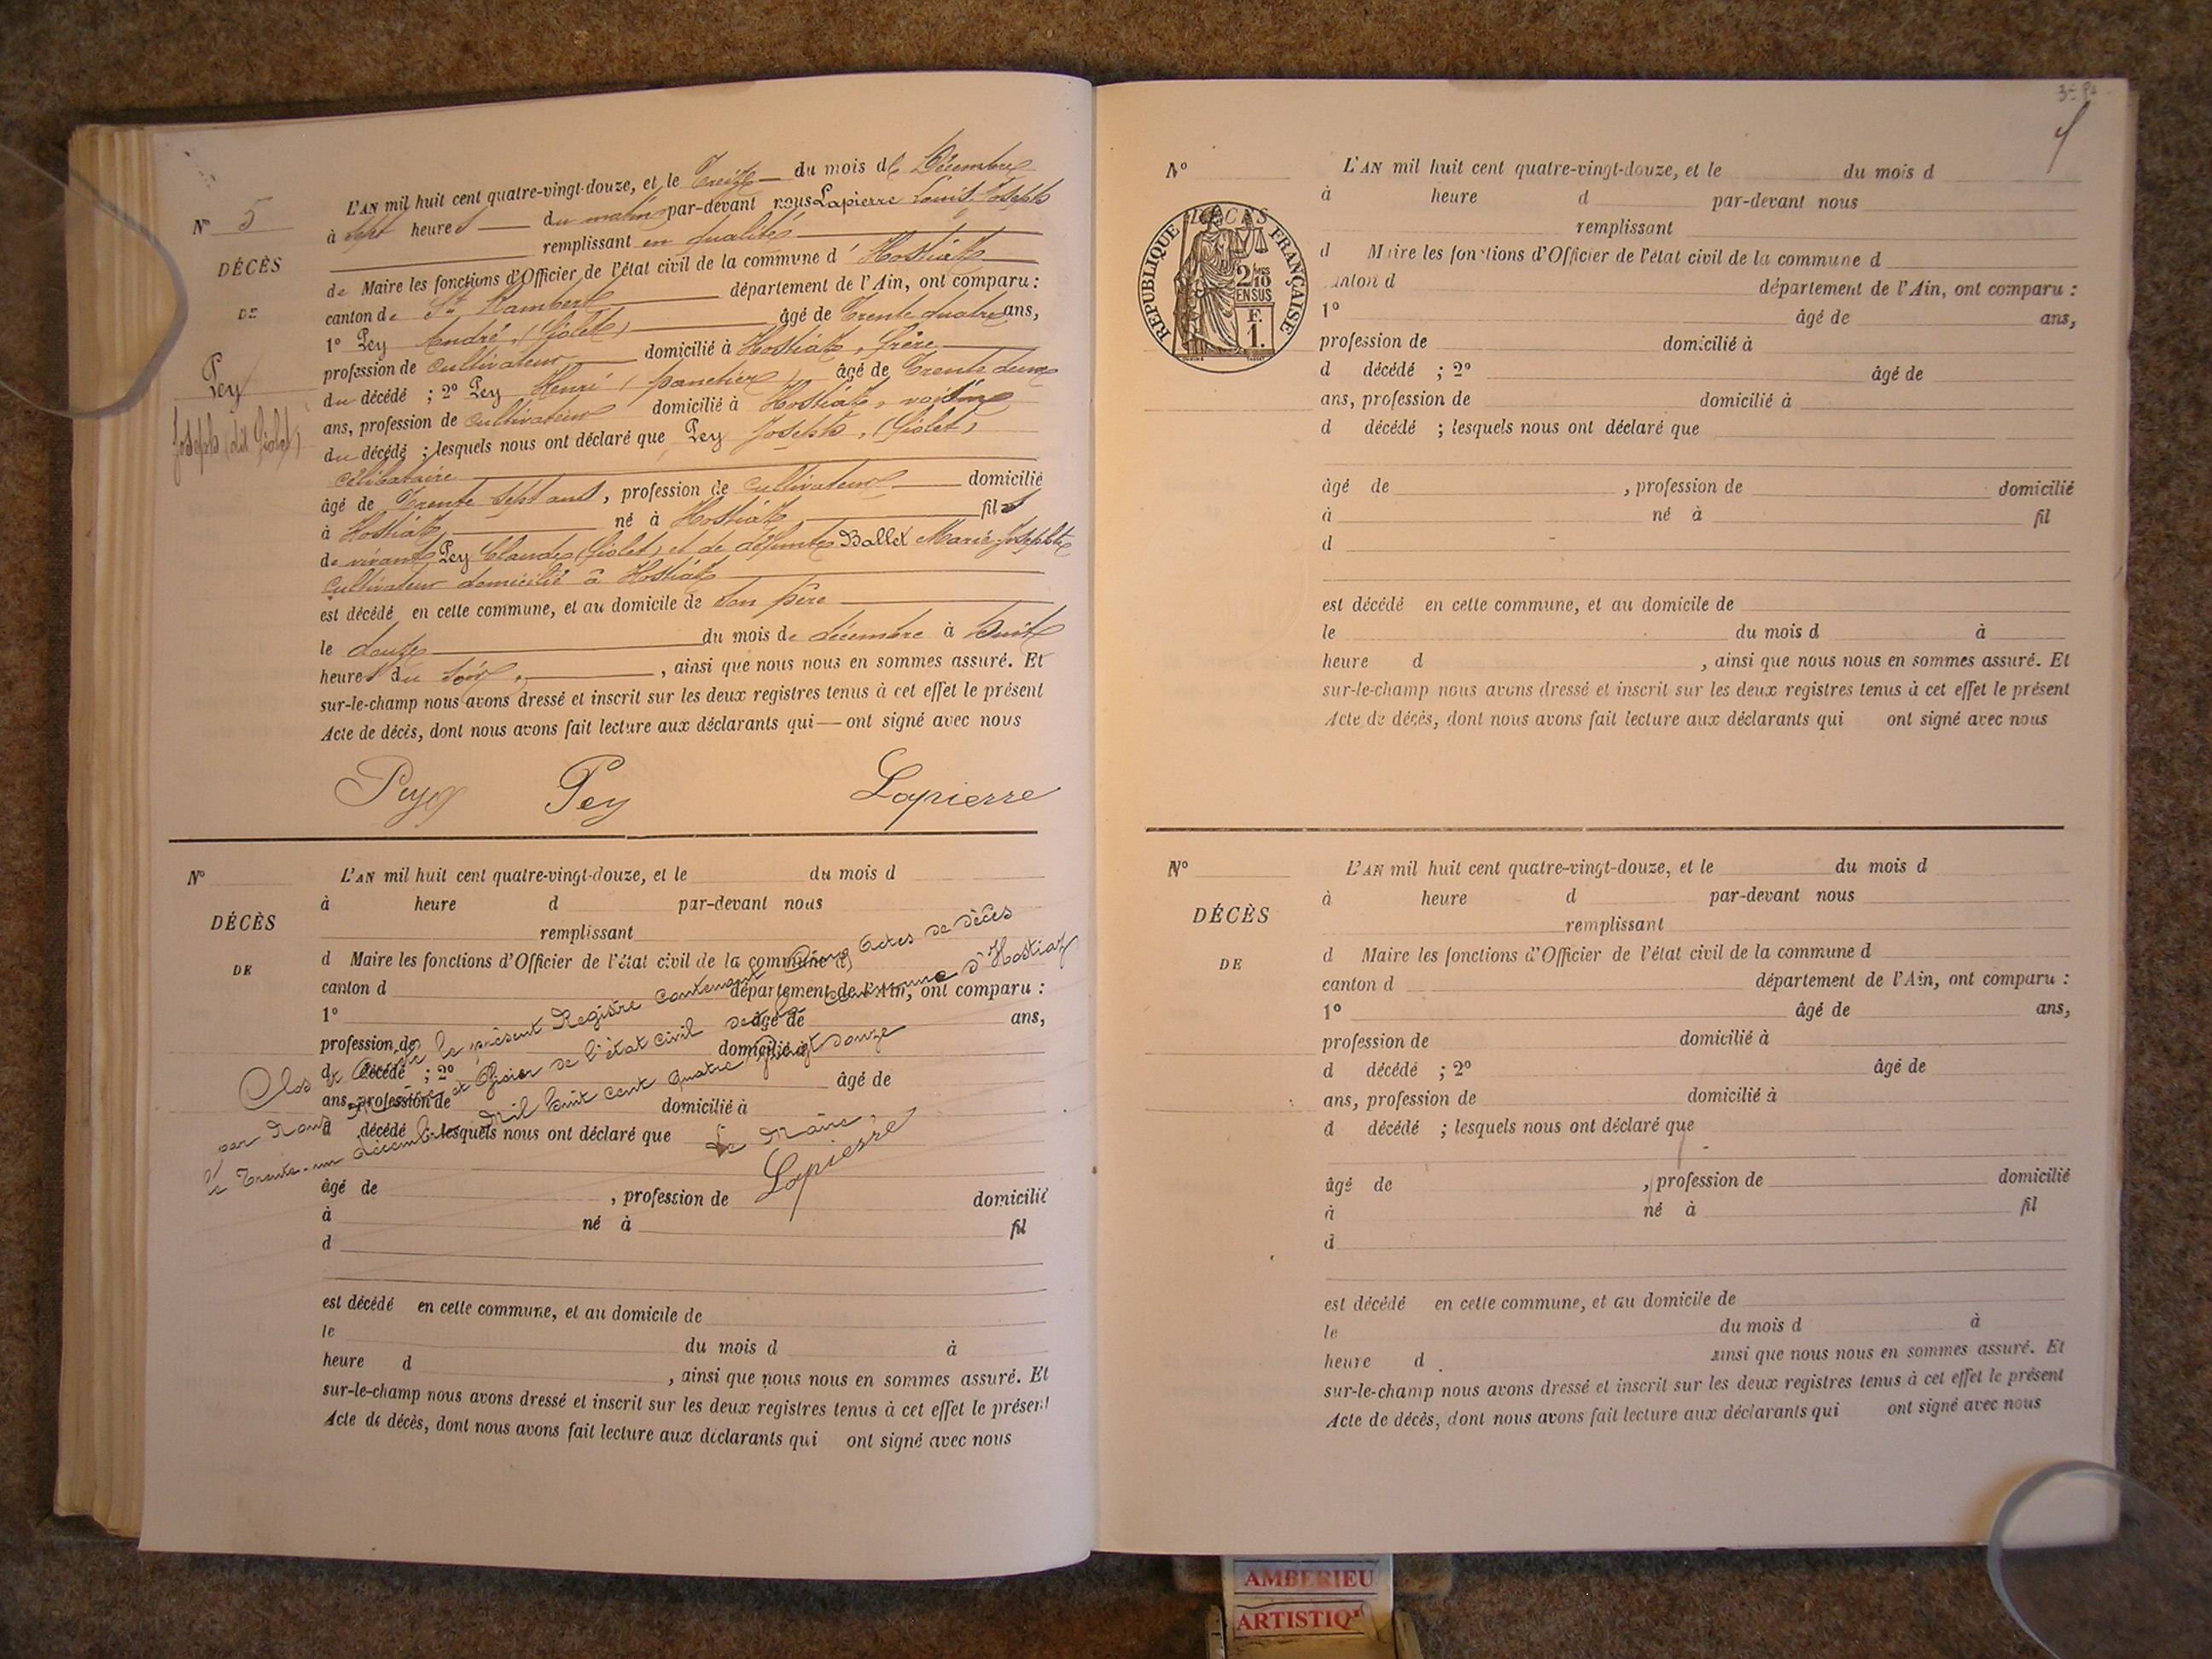 N° 5
DÉCÈS
DE
Pey
Joseph (dit Giolet)
L'AN mil huit cent quatre-vingt-douze, et le Treize du mois de Décembre
à Sept heures du matin par-devant nous Lapierre Louis Joseph
remplissant en qualité
de Maire les fonctions d'Officier de l'état civil de la commune d'Hostiaz
canton de St Rambert département de l'Ain, ont comparu :
1° Pey André, (Giolet) âgé de Trente quatre ans,
profession de cultivateur domicilié à Hostiaz, frère
du décédé ; 2° Pey Henri (panetier) âgé de Trente deux
ans, profession de cultivateur domicilié à Hostiaz, voisin
du décédé ; lesquels nous ont déclaré que Pey Joseph, (Giolet)
célibataire
âgé de Trente Sept ans, profession de cultivateur domicilié
à Hostiaz né à Hostiaz fils
de vivant Pey Claude (Giolet) et de défunte Ballet Marie Josephte
cultivateur domicilié à Hostiaz
est décédé en cette commune, et au domicile de son père
le douze du mois de décembre à huit
heures du soir, ainsi que nous nous en sommes assuré. Et
sur-le-champ nous avons dressé et inscrit sur les deux registres tenus à cet effet le présent
Acte de décès, dont nous avons fait lecture aux déclarants qui — ont signé avec nous
Pey Pey Lapierre
N°
DÉCÈS
DE
L'AN mil huit cent quatre-vingt-douze, et le du mois d
à heure d par-devant nous
remplissant
d Maire les fonctions d'Officier de l'état civil de la commune d
canton d département de l'Ain, ont comparu :
1° âgé de ans,
profession de domicilié à
d décédé ; 2° âgé de
ans, profession de domicilié à
d décédé ; lesquels nous ont déclaré que
âgé de , profession de domicilié
à né à fil
d
est décédé en cette commune, et au domicile de
le du mois d à
heure d , ainsi que nous nous en sommes assuré. Et
sur-le-champ nous avons dressé et inscrit sur les deux registres tenus à cet effet le présent
Acte de décès, dont nous avons fait lecture aux déclarants qui ont signé avec nous
Clos et arrêté le présent Registre contenant Cinq Actes de décès
par Nous Maire et Officier de l'état civil de la Commune d'Hostiaz
le Trente-un décembre Mil huit cent quatre vingt douze
Le Maire,
Lapierre
N°
RÉPUBLIQUE FRANÇAISE
2/10
EN SUS
F.
1.
L'AN mil huit cent quatre-vingt-douze, et le du mois d
à heure d par-devant nous
remplissant
d Maire les fonctions d'Officier de l'état civil de la commune d
canton d département de l'Ain, ont comparu :
1° âgé de ans,
profession de domicilié à
d décédé ; 2° âgé de
ans, profession de domicilié à
d décédé ; lesquels nous ont déclaré que
âgé de , profession de domicilié
à né à fil
d
est décédé en cette commune, et au domicile de
le du mois d à
heure d , ainsi que nous nous en sommes assuré. Et
sur-le-champ nous avons dressé et inscrit sur les deux registres tenus à cet effet le présent
Acte de décès, dont nous avons fait lecture aux déclarants qui ont signé avec nous
N°
DÉCÈS
DE
L'AN mil huit cent quatre-vingt-douze, et le du mois d
à heure d par-devant nous
remplissant
d Maire les fonctions d'Officier de l'état civil de la commune d
canton d département de l'Ain, ont comparu :
1° âgé de ans,
profession de domicilié à
d décédé ; 2° âgé de
ans, profession de domicilié à
d décédé ; lesquels nous ont déclaré que
âgé de , profession de domicilié
à né à fil
d
est décédé en cette commune, et au domicile de
le du mois d à
heure d ainsi que nous nous en sommes assuré. Et
sur-le-champ nous avons dressé et inscrit sur les deux registres tenus à cet effet le présent
Acte de décès, dont nous avons fait lecture aux déclarants qui ont signé avec nous
AMBERIEU
ARTISTIQ